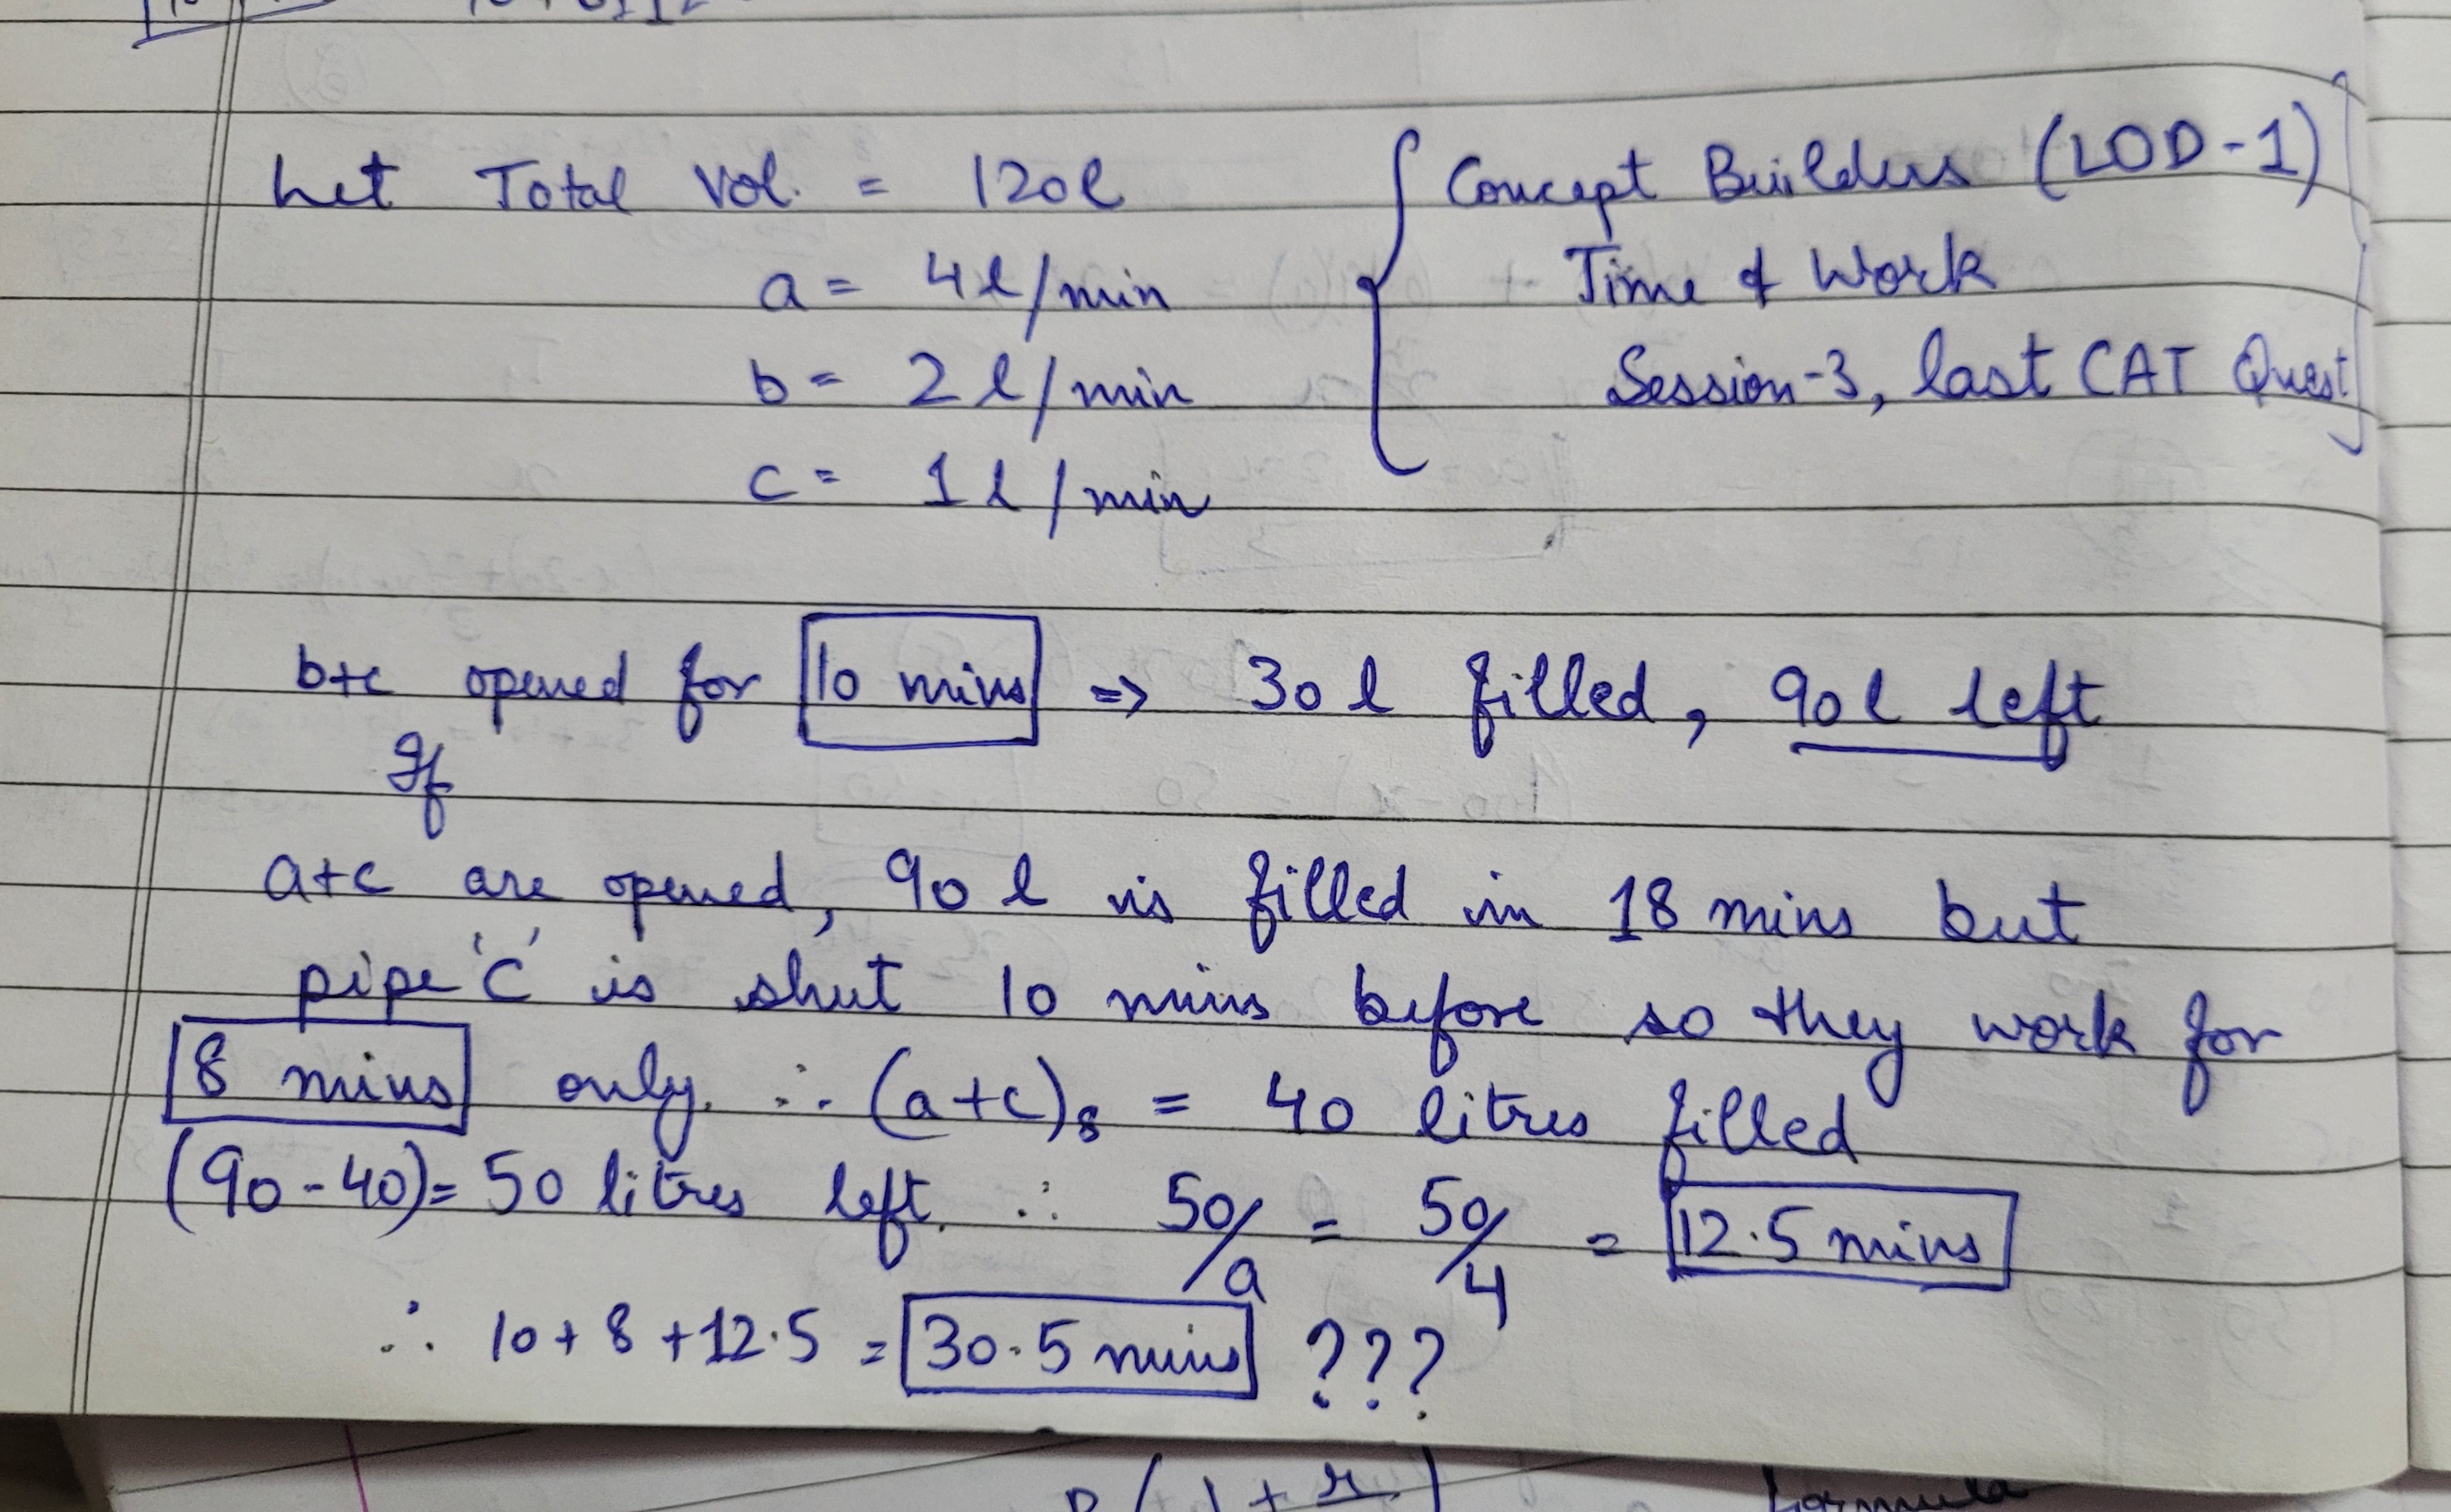 Let Total Vol. = 120l
a = 4l/min
b = 2l/min
c = 1l/min
Concept Builders (LOD-1)
Time & Work
Session-3, last CAT Quest
b+c opened for 10 mins => 30 l filled, 90 l left
If
a+c are opened, 90 l is filled in 18 mins but
pipe 'C' is shut 10 mins before so they work for
8 mins only. ∴ (a+c)₈ = 40 litres filled
(90-40)= 50 litres left. ∴ 50/a = 50/4 = 12.5 mins
∴ 10+8+12.5 = 30.5 mins ???